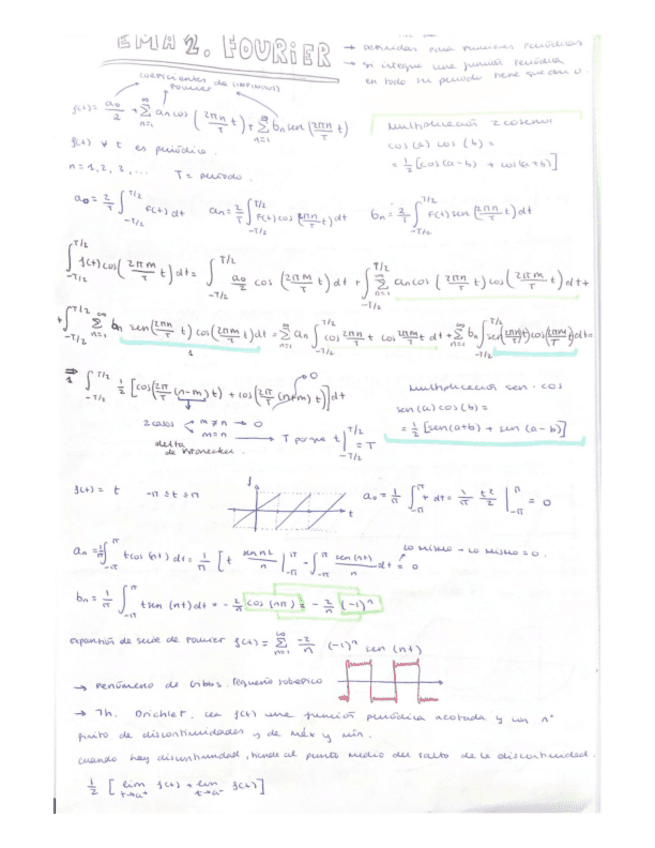 EMA 2. FOURIER → definidas para funciones periódicas
→ si integro una función periódica
en todo su periodo tiene que dar 0.
coeficientes de (INFINITOS)
Fourier
f(t) = a₀/2 + ∑_{n=1}^∞ aₙ cos(2πn/T t) + ∑_{n=1}^∞ bₙ sen(2πn/T t)
f(t) ∀ t es periódica.
n = 1, 2, 3, ... T = periodo.
Multiplicación 2 cosenos
cos(a) cos(b) =
= 1/2 [cos(a-b) + cos(a+b)]
a₀ = 2/T ∫_{-T/2}^{T/2} f(t) dt aₙ = 2/T ∫_{-T/2}^{T/2} f(t) cos(2πn/T t) dt bₙ = 2/T ∫_{-T/2}^{T/2} f(t) sen(2πn/T t) dt
∫_{-T/2}^{T/2} f(t) cos(2πm/T t) dt = ∫_{-T/2}^{T/2} a₀/2 cos(2πm/T t) dt + ∫_{-T/2}^{T/2} ∑_{n=1}^∞ aₙ cos(2πn/T t) cos(2πm/T t) dt +
+ ∫_{-T/2}^{T/2} ∑_{n=1}^∞ bₙ sen(2πn/T t) cos(2πm/T t) dt = ∑_{n=1}^∞ aₙ ∫_{-T/2}^{T/2} cos 2πn/T t cos 2πm/T t dt + ∑_{n=1}^∞ bₙ ∫_{-T/2}^{T/2} sen(2πn/T t) cos(2πm/T t) dt =
1
⇒ 1 ∫_{-T/2}^{T/2} 1/2 [cos(2π/T (n-m) t) + cos(2π/T (n+m) t)] dt → 0
2 casos < m ≠ n → 0
m = n → T porque t |_{-T/2}^{T/2} = T
delta
de Kronecker
Multiplicación sen · cos
sen(a) cos(b) =
= 1/2 [sen(a+b) + sen(a-b)]
f(t) = t -π ≤ t ≤ π
f
t
a₀ = 1/π ∫_{-π}^{π} t dt = 1/π t²/2 |_{-π}^{π} = 0
aₙ = 1/π ∫_{-π}^{π} t cos(nt) dt = 1/π [t sen nt/n |_{-π}^{π} - ∫_{-π}^{π} sen(nt)/n dt = 0
lo mismo - lo mismo = 0.
bₙ = 1/π ∫_{-π}^{π} t sen(nt) dt = - 2/n cos(nπ) = - 2/n (-1)ⁿ
expansión de serie de Fourier f(t) = ∑_{n=1}^∞ -2/n (-1)ⁿ sen(nt)
→ Fenómeno de Gibbs. Pequeño sobrepico
→ Th. Dirichlet. sea f(t) una función periódica acotada y un nº
finito de discontinuidades y de máx y mín.
cuando hay discontinuidad, tiende al punto medio del salto de la discontinuidad.
1/2 [lim_{t→a⁺} f(t) + lim_{t→a⁻} f(t)]